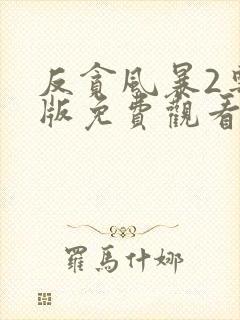 反貪風暴2粵
版免費觀看
羅馬什娜